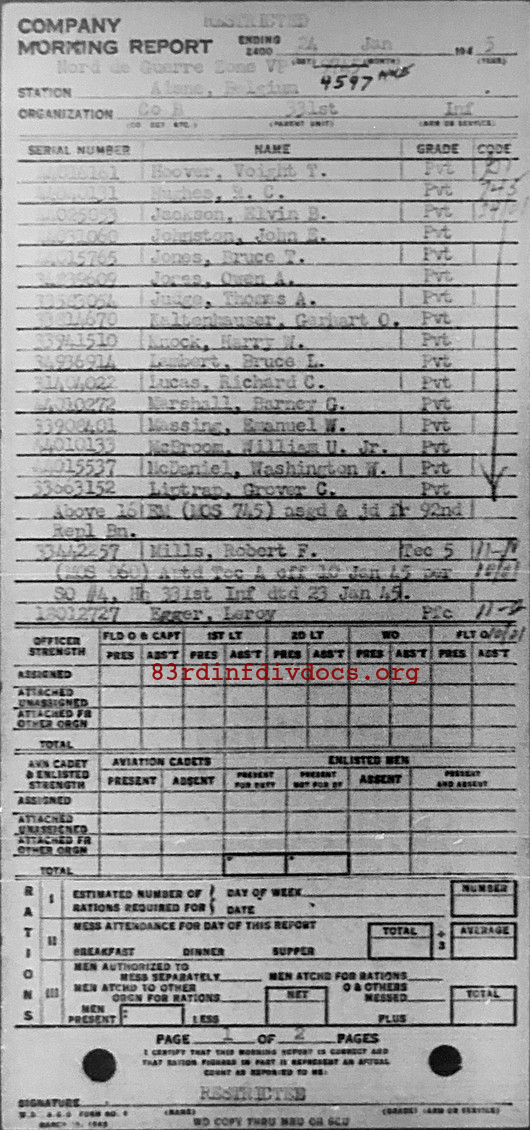 RESTRICTED
COMPANY
MORNING REPORT ENDING 2400 24 Jan 194 5
(DAY) (MONTH) (YEAR)
Nord de Guerre Zone VP 4597
STATION Aisne, Belgium
ORGANIZATION Co B 331st Inf
(CO DET ETC.) (PARENT UNIT) (ARM OR SERVICE)
SERIAL NUMBER NAME GRADE CODE
44016161 Hoover, Voight T. Pvt
Hughes, R. C. Pvt 745
44025053 Jackson, Elvin B. Pvt
44031060 Johnston, John E. Pvt
44015765 Jones, Bruce T. Pvt
34839609 Jones, Owen A. Pvt
33583054 Judge, Thomas A. Pvt
33814670 Kaltenhauser, Garhart O. Pvt
33941510 Knock, Harry W. Pvt
34936914 Lambert, Bruce L. Pvt
31404022 Lucas, Richard C. Pvt
44010272 Marshall, Barney G. Pvt
33908401 Massing, Emanuel W. Pvt
44010133 McBroom, William U. Jr. Pvt
44015537 McDaniel, Washington W. Pvt
33663152 Liptrap, Grover C. Pvt
Above 16 EM (MOS 745) asgd & jd fr 92nd
Repl Bn.
33442257 Mills, Robert F. Tec 5
(MOS 060) Aptd Tec 4 eff 10 Jan 45 per
SO #4, Hq 331st Inf dtd 23 Jan 45.
18012727 Egger, Leroy Pfc
OFFICER STRENGTH FLD O & CAPT 1ST LT 2D LT WO FLT O
PRES ABS'T PRES ABS'T PRES ABS'T PRES ABS'T PRES ABS'T
ASSIGNED
83rdinfdivdocs.org
ATTACHED UNASSIGNED
ATTACHED FR OTHER ORGN
TOTAL
AVN CADET & ENLISTED STRENGTH AVIATION CADETS ENLISTED MEN
PRESENT ABSENT PRESENT FOR DUTY PRESENT NOT FOR DY ABSENT PRESENT AND ABSENT
ASSIGNED
ATTACHED UNASSIGNED
ATTACHED FR OTHER ORGN
TOTAL
RATIONS
I ESTIMATED NUMBER OF RATIONS REQUIRED FOR DAY OF WEEK DATE NUMBER
II MESS ATTENDANCE FOR DAY OF THIS REPORT TOTAL ÷ 3 AVERAGE
BREAKFAST DINNER SUPPER
III MEN AUTHORIZED TO MESS SEPARATELY MEN ATCHD FOR RATIONS
MEN ATCHD TO OTHER ORGN FOR RATIONS NET O & OTHERS MESSED TOTAL
MEN PRESENT LESS PLUS
PAGE 1 OF 2 PAGES
I CERTIFY THAT THIS MORNING REPORT IS CORRECT AND
THAT RATION FIGURES IN PART III REPRESENT AN ACTUAL
COUNT AS REPORTED TO ME:
RESTRICTED
SIGNATURE
(NAME) (GRADE) (ARM OR SERVICE)
W.D. A.G.O FORM NO. 1
WD COPY THRU MRU OR SCU